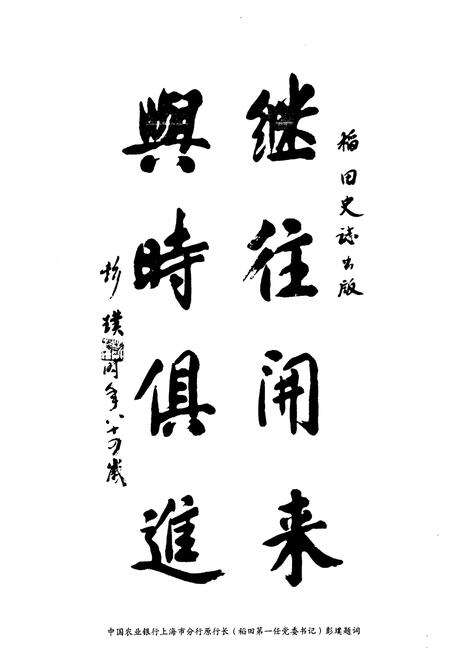 稻田史誌出版
继往開来
與時俱進
彭璞时年八十四歲
中国农业银行上海市分行原行长（稻田第一任党委书记）彭璞题词